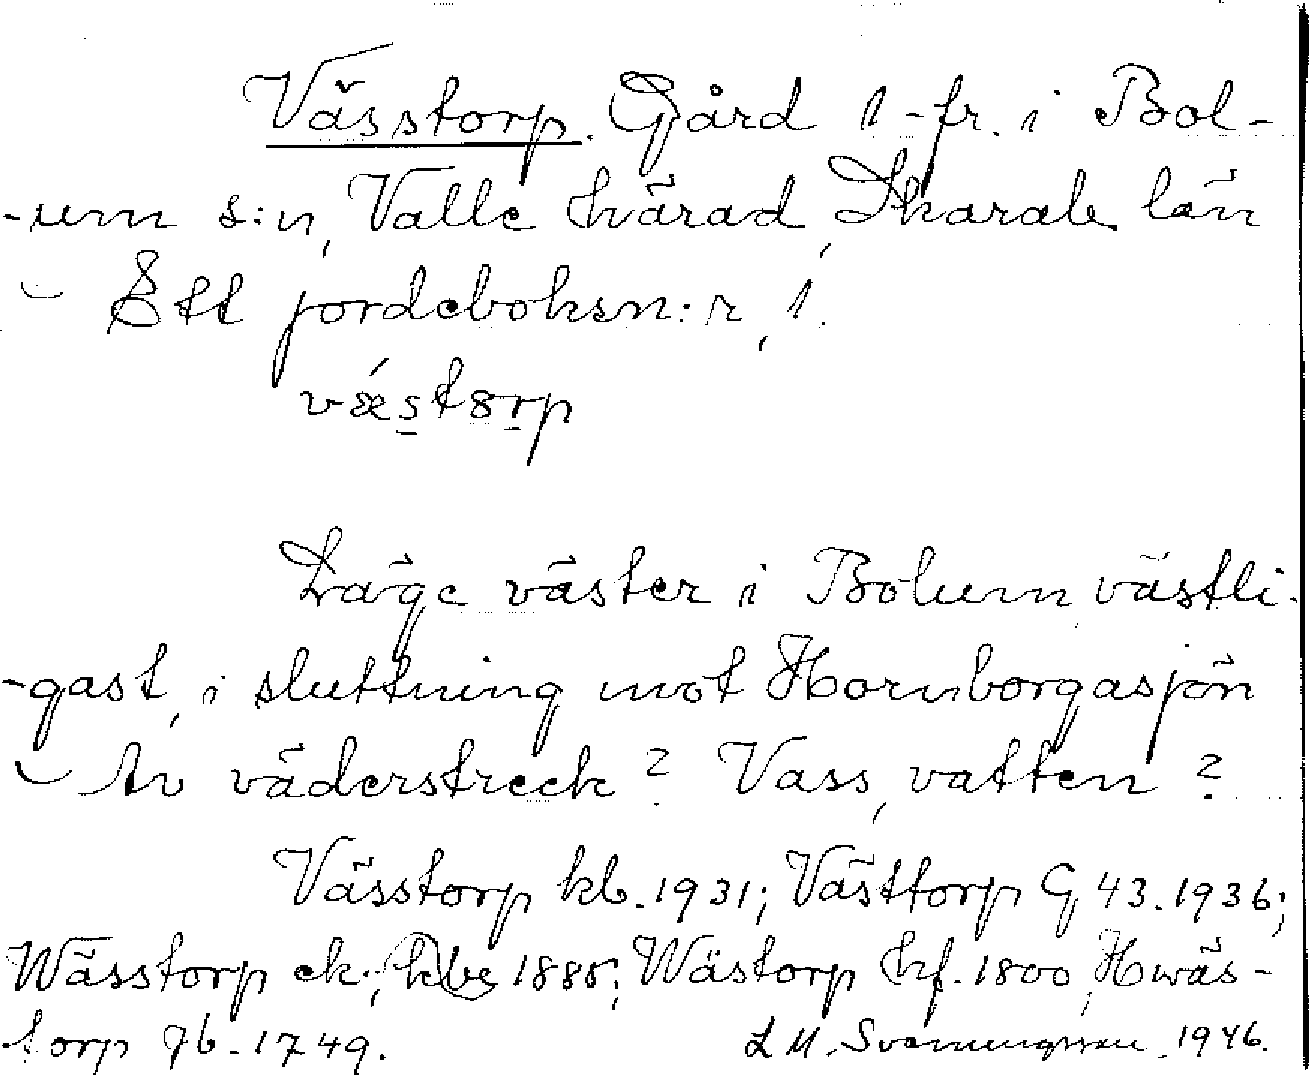 Vässtorp. Gård 1-fr. i Bol-
-um s:n, Valle härad, Skarab. län
- Ett jordeboksn:r, 1.
vǽstɷrp
Läge väster i Bolum, västli-
-gast, i sluttning mot Hornborgasjön
- Av väderstreck? Vass, vatten?
Vässtorp kb. 1931; Västtorp G 43. 1936;
Wässtorp ek.; kbg 1885; Wästorp hf. 1800, Hwäs-
torp Jb. 1749.
L M. Svenungsson 1946.